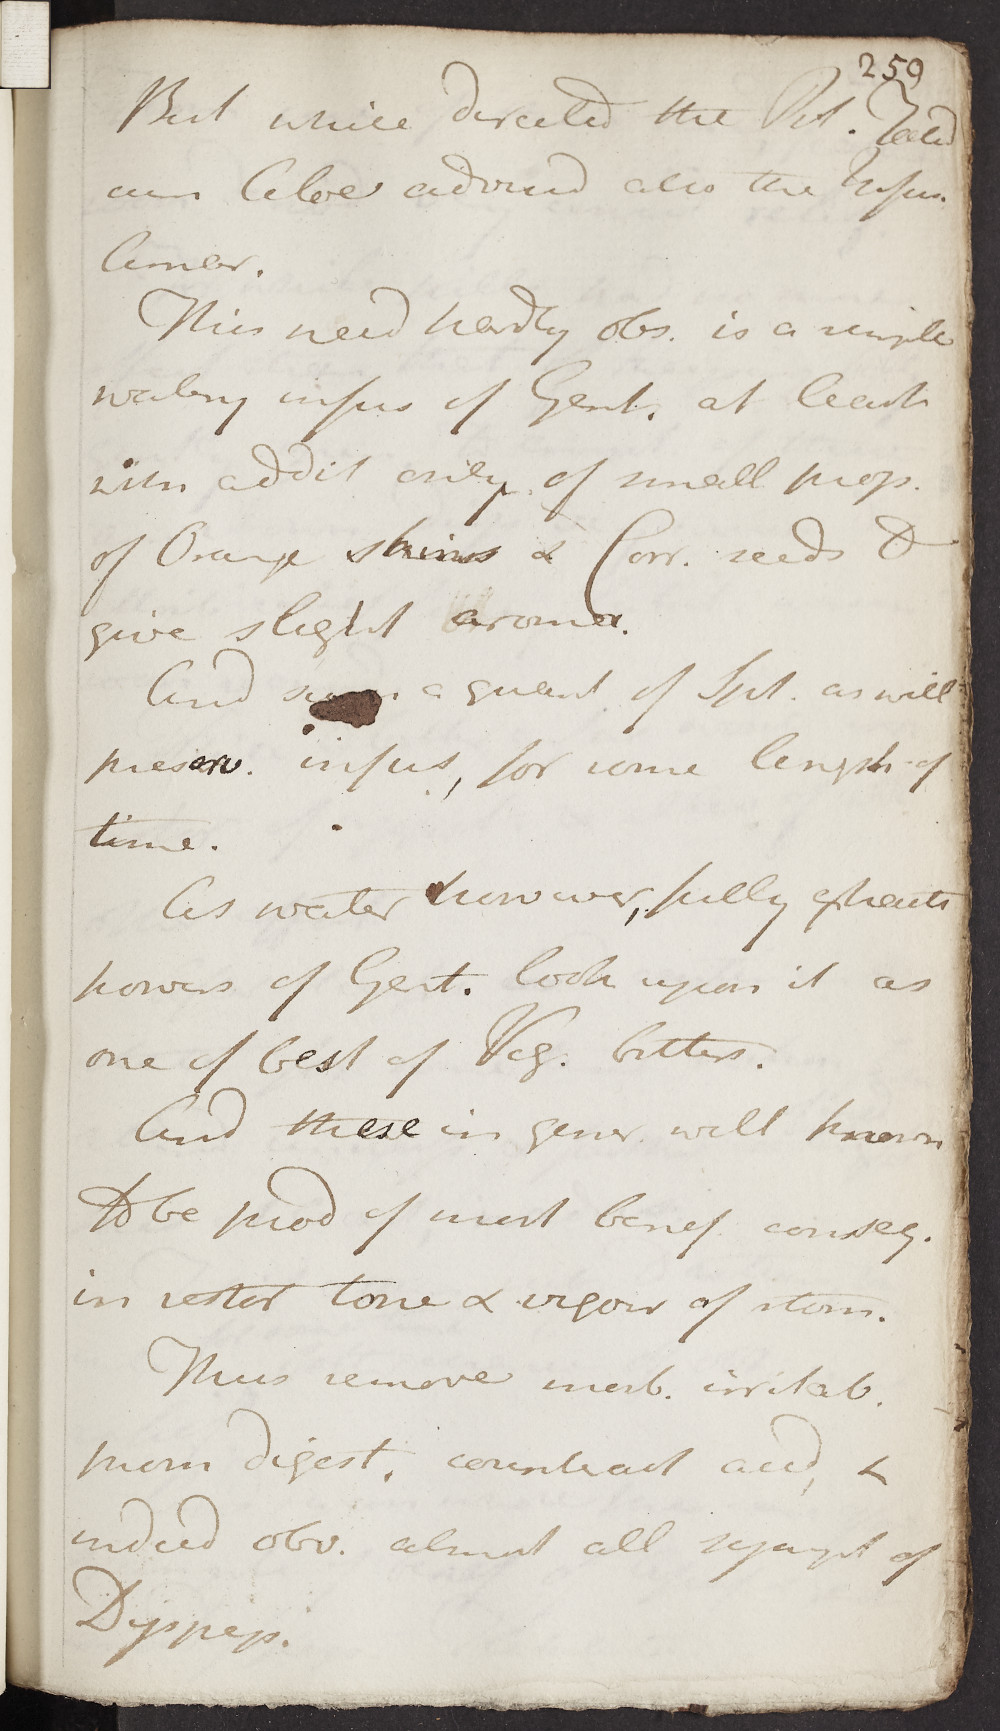 259
But while directed the Pil. Foetid
cum Aloe advised also the Infus.
Amar.
This need hardly obs. is a simple
watery infus of Gent. at least
with addit only of small prop.
of Orange skins & Corr. seeds to
give slight aroma.
And such a quant of Spt. as will
preserv. infus, for some length of
time.
As water however, fully extracts
powers of Gent. look upon it as
one of best of Veg. bitters.
And these in gener. well known
to be prod of most benef conseq.
in restor tone & vigour of stom.
Thus remove morb. irritab.
prom digest. counteract acid, &
indeed obv. almost all sympt of
Dyspeps.